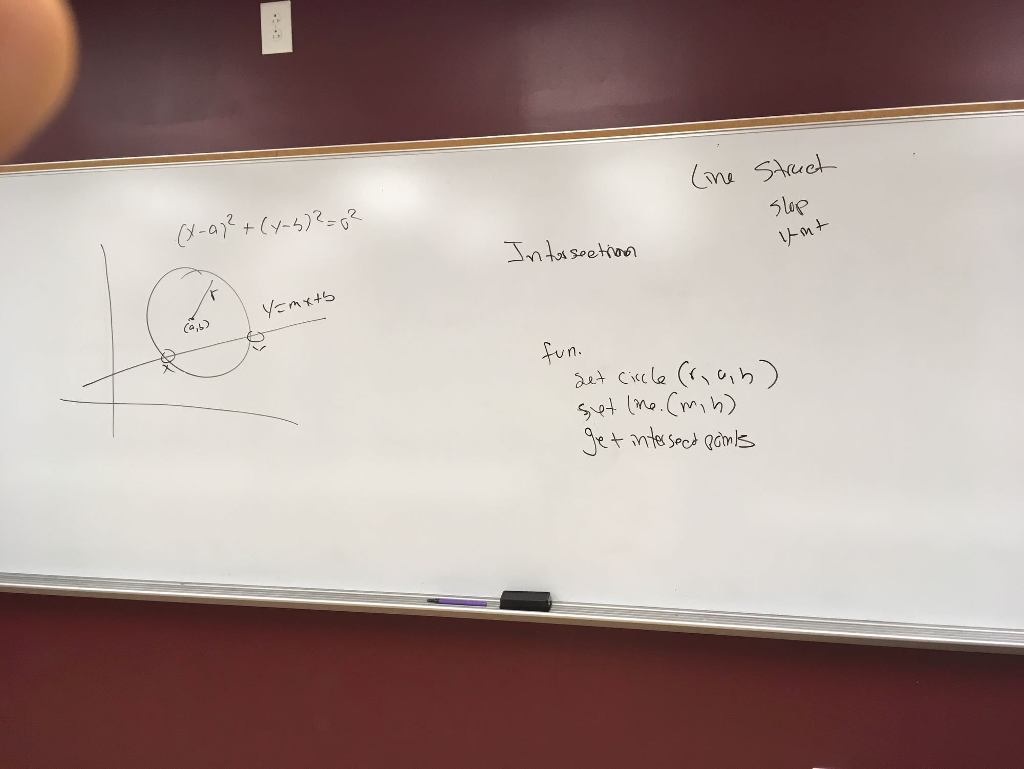 (x-a)² + (y-b)² = r²
r
(a,b)
y=mx+b
x
Intersection
Line Struct
slop
y-int
fun.
set circle (r, a, b)
set line. (m, b)
get intersect points